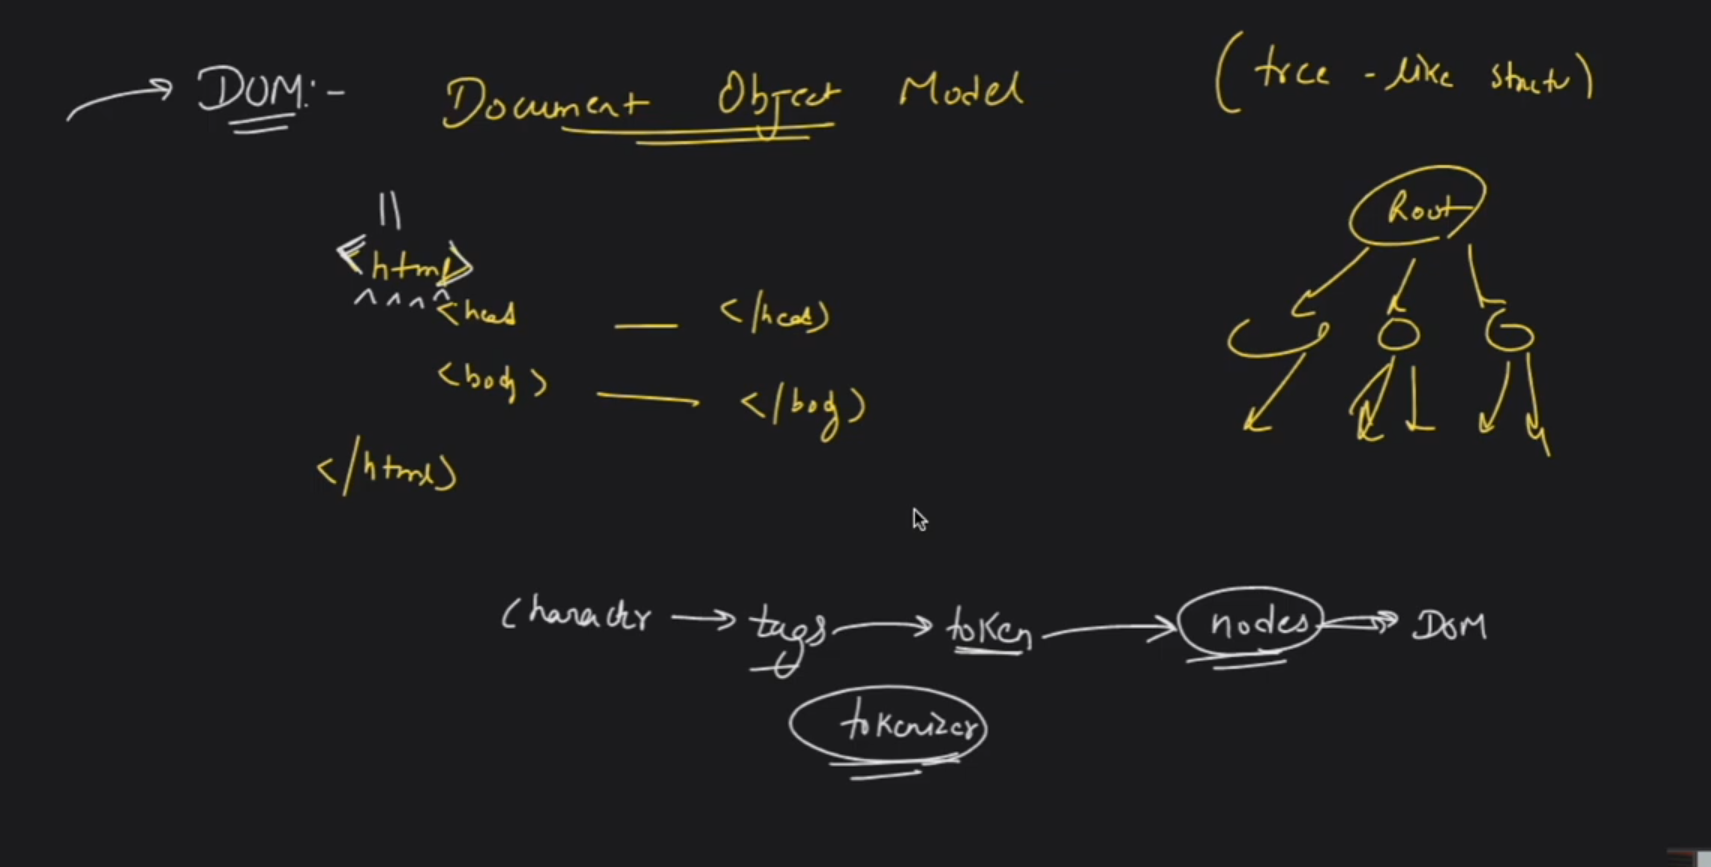 DOM:- Document Object Model (tree-like structr)
Root
<html>
<head — </head>
<body> — </body>
</html>
Character → tags → token → nodes → DOM
tokenizer